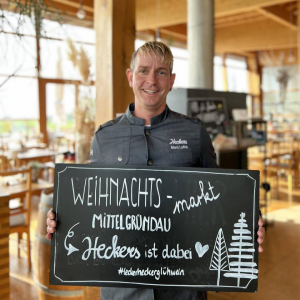 Heckers
WEIHNACHTS-markt
MITTELGRÜNDAU
Heckers ist dabei
#leckerheckerglühwein